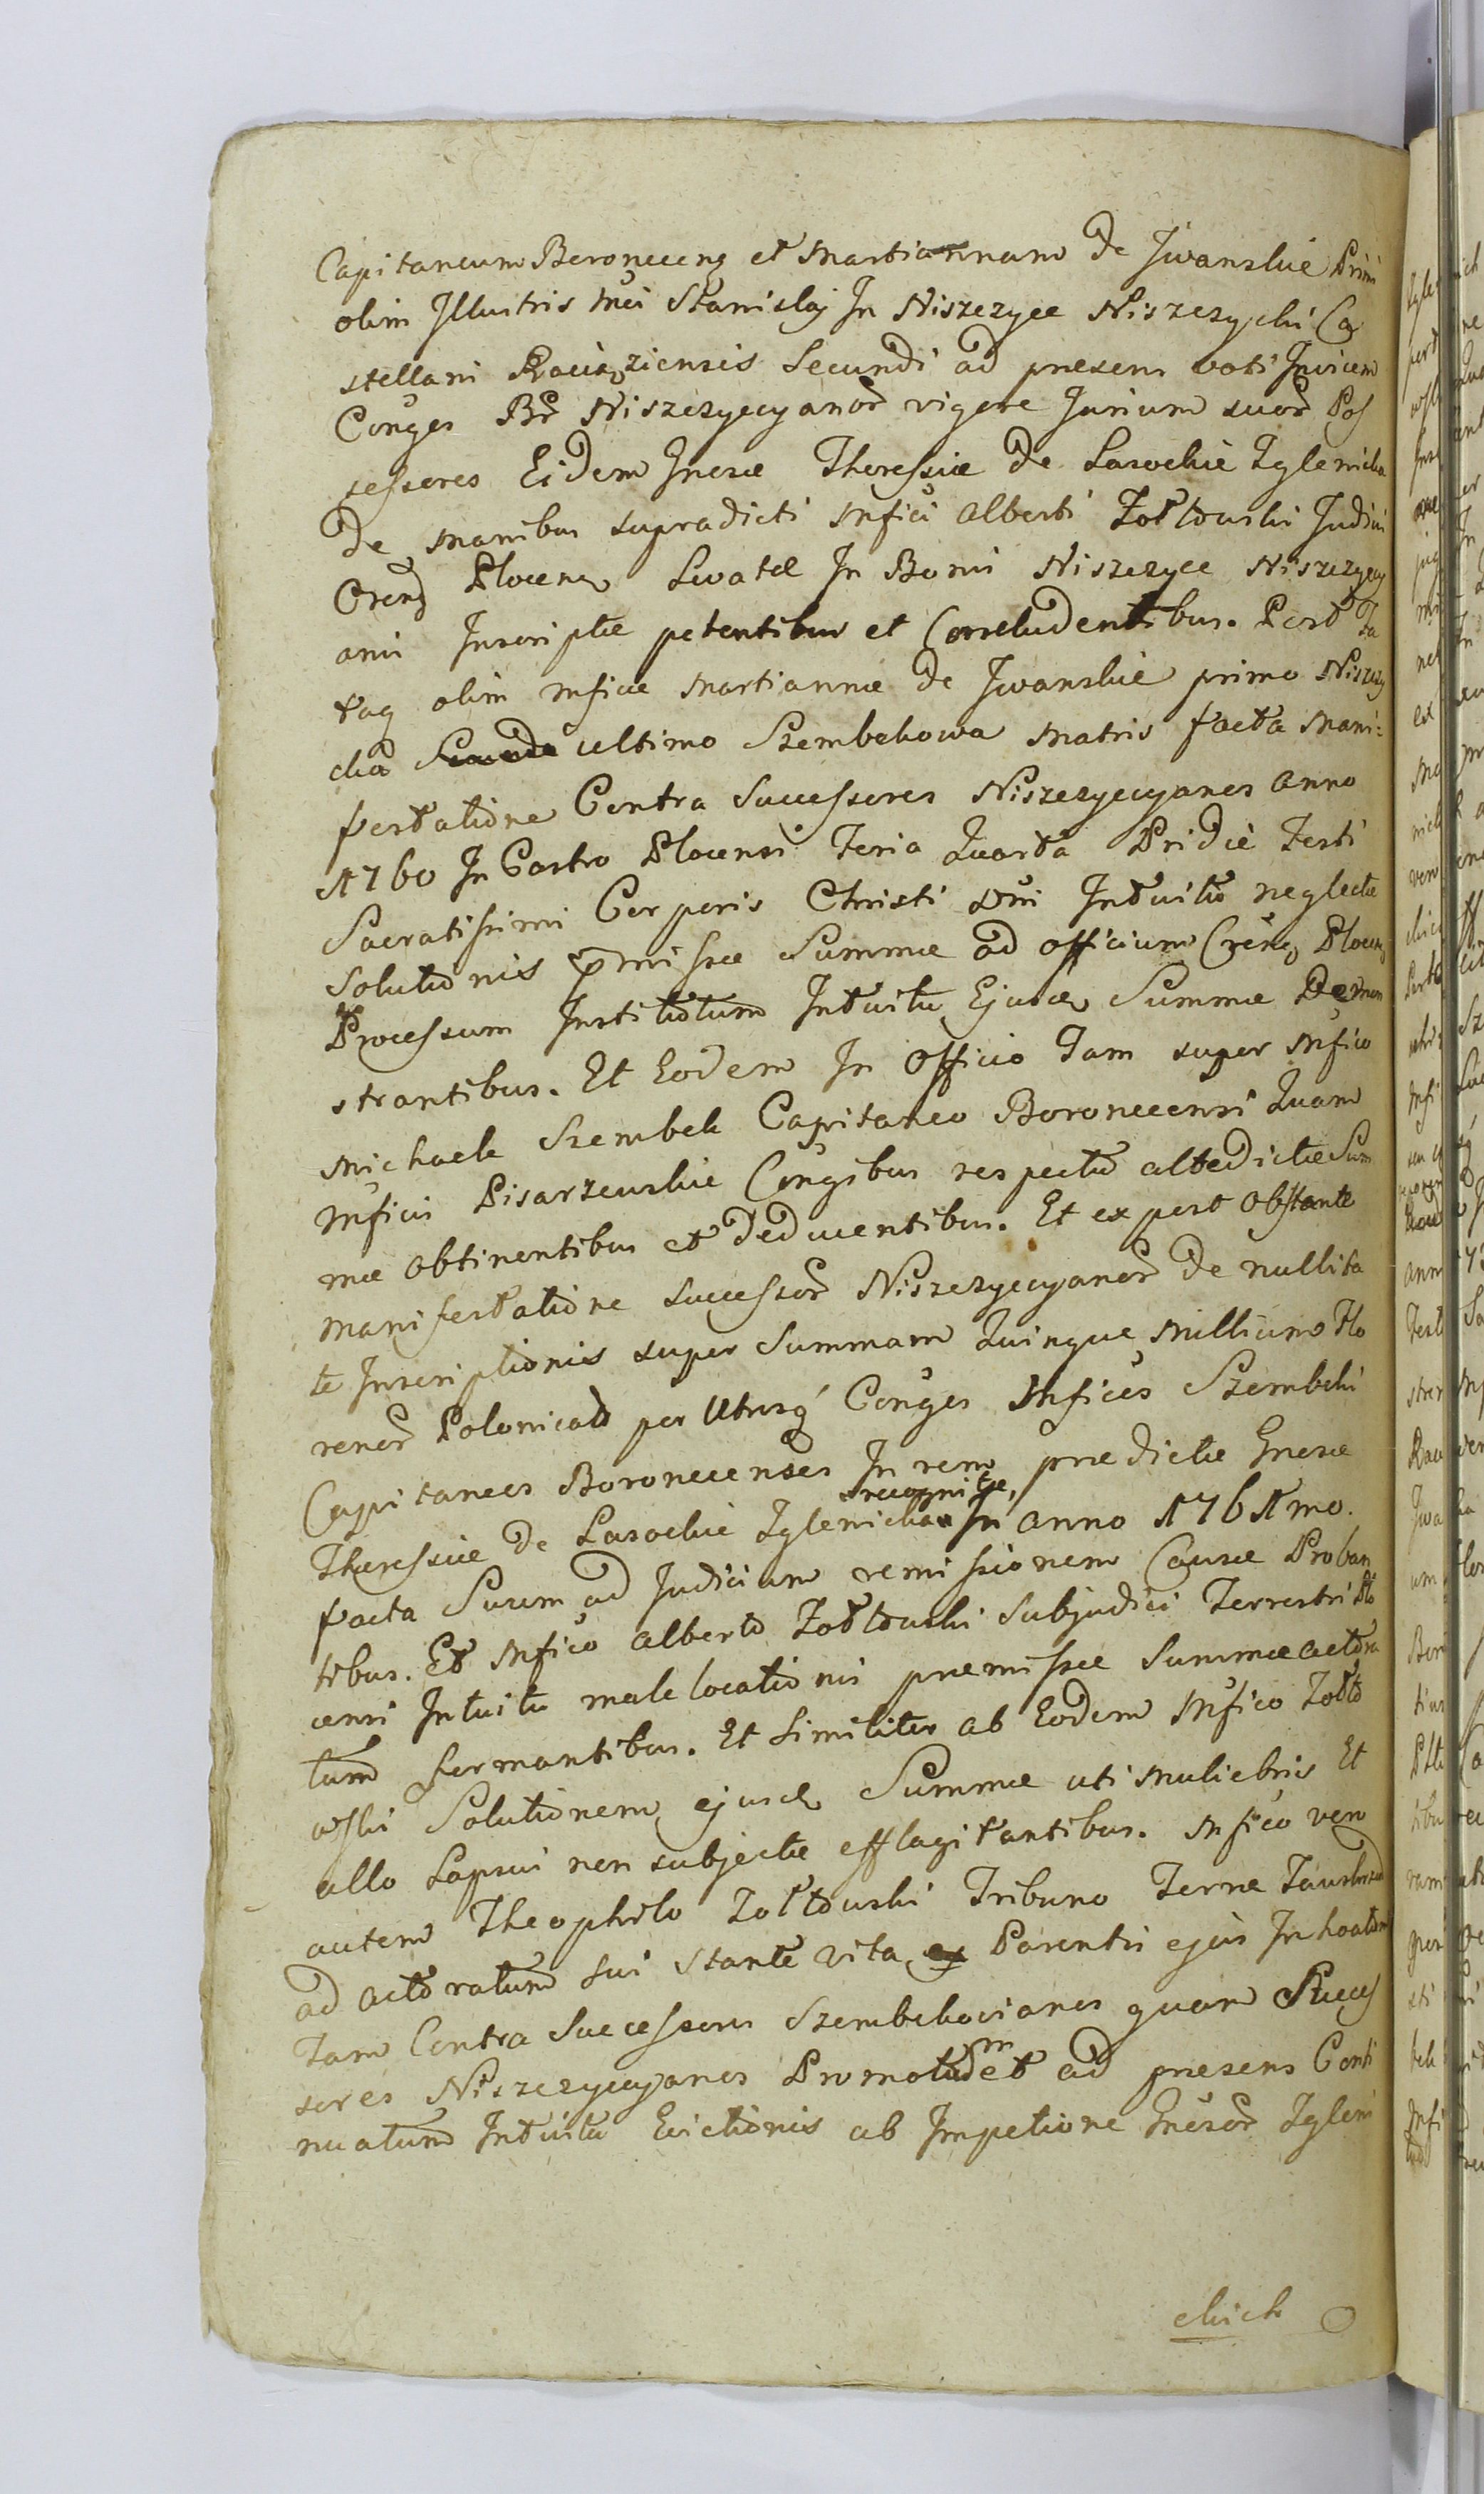 Capitaneum Boroneceng et Martiannam de Jwanskie Primi
olim Jllustris Mci Stanislaj Jn Niszczyce Niszczycki Ca
stellani Raciąziensis Secundi ad presens voti Jnvicem
Conges Br Niszczycyanor vigore Jurium suor Pos
sessores Eidem Gnosæ Theressiæ de Lasockie Zglenicka
de manibus supradicti Mfici Alberti Zołtowski Judici
Crend Plocens Levatæ Jn Bonis Niszczyce Niszczycy
anis Jnscriptæ petentibus et Concludentibus. Post Ta
tag olim Mficæ Martiannæ de Jwanskie primo Niszczy
cka ultimo Szembekowa Matris facta Mani=
festatione Contra Successores Niszczycyanos Anno
1760 Jn Castro Plocensi Feria Quarta Pridie Festi
Sacratissimi Corporis Christi Dni Jntuitu neglectæ
Solutionis pmissæ Summæ ad Officium Creng Plocens
Processum Jnstitutum Jntuitu Ejusd Summæ Demon
strantibus. Et Eodem Jn Officio Tam super Mfico
Michaele Szembek Capitaneo Boronecensi Quam
Mficis Pisarzewskie Congibus respectu altedictæ Sum
mæ obtinentibus et deducentibus. Et ex post Obstante
Manifestatione Successor Niszczycyanor de nullita
te Jnscriptionis super Summam Quinque Millium Flo
renor Polonicad per Utrosq Conges Mficos Szembeki
Capitaneos Boronecenses Jn rem prædictæ Gnosæ
Theressiæ de Lasockie Zglenicka recognitæ, Jn Anno 1761mo.
facta Suum ad Judicium remissionem Causæ Proban
tibus. Et Mfico Alberto Zołtowski Subjudici Terrestri Plo
censi Jntuitu male locationis præmissæ Summæ actora
tum formantibus. Et Similiter ab Eodem Mfico Zołto
wski Solutionem ejusd Summæ uti Muliebris Et
ullo Lapsui non subjectæ efflagitantibus. Mfico vero
autem Theophilo Zołtowski Tribuno Terræ
ad actoratum sui Stante vita Parentis ejus Jnhoatum
Tam Contra Successores Szembekovianos quam Succes
sores Niszczycyanos Promotum et ad presens Conti
nuatum Jntuitu Evictionis ab Jmpetione Gnosor Zgleni
ckich